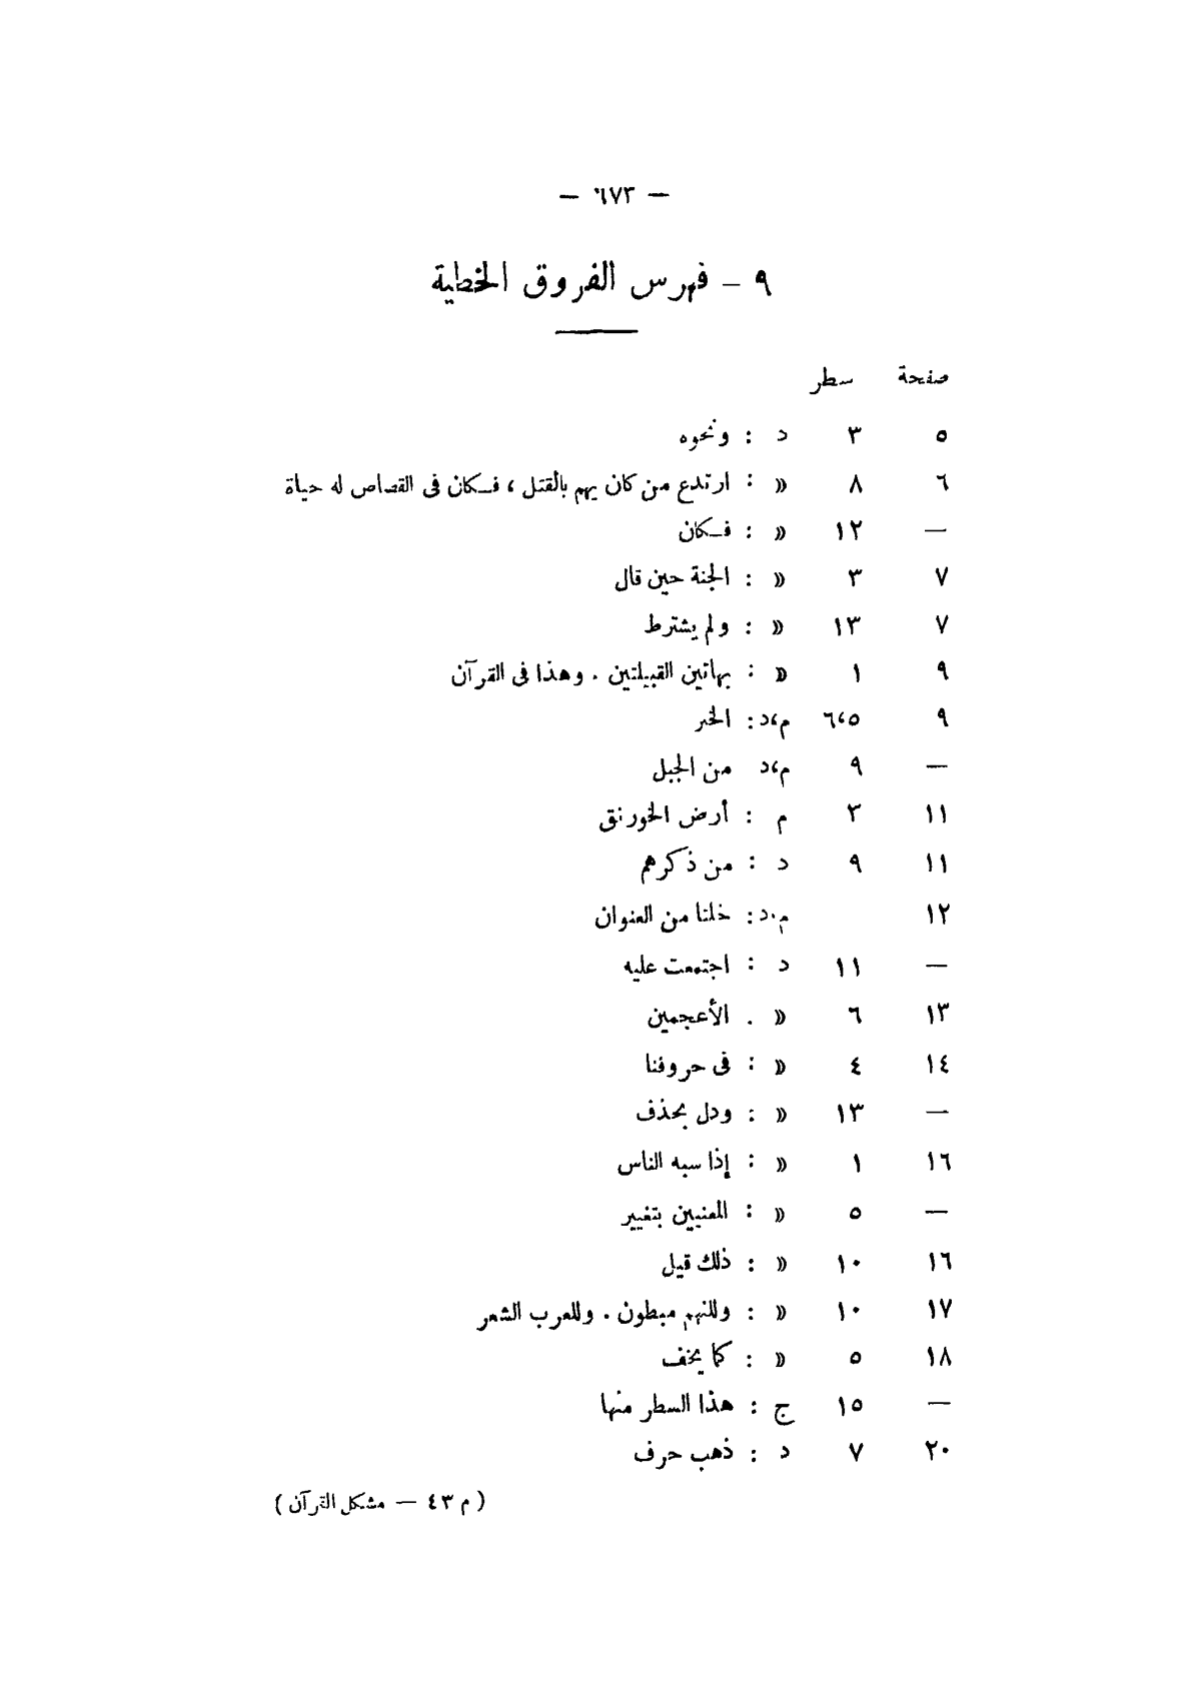 — ٦٧٣ —
٩ – فهرس الفروق الخطية
صفحة سطر
٥ ٣ د : ونحوه
٦ ٨ » : ارتدع من كان يهم بالقتل ، فكان فى القصاص له حياة
— ١٢ » : فكان
٧ ٣ » : الجنة حين قال
٧ ١٣ » : ولم يشترط
٩ ١ » : بهاتين القبيلتين . وهذا فى القرآن
٩ ٦،٥ م،د : الخبر
— ٩ م،د من الجبل
١١ ٣ م : أرض الخورنق
١١ ٩ د : من ذكرهم
١٢ م،د : خلتا من العنوان
— ١١ د : اجتمعت عليه
١٣ ٦ » . الأعجمين
١٤ ٤ » : فى حروفنا
— ١٣ » : ودل بحذف
١٦ ١ » : إذا سبه الناس
— ٥ » : المعنيين بتغيير
١٦ ١٠ » : ذلك قيل
١٧ ١٠ » : وللنهم مبطون . وللعرب الشعر
١٨ ٥ » : كما يخف
— ١٥ ج : هذا السطر منها
٢٠ ٧ د : ذهب حرف
( م ٤٣ — مشكل القرآن )